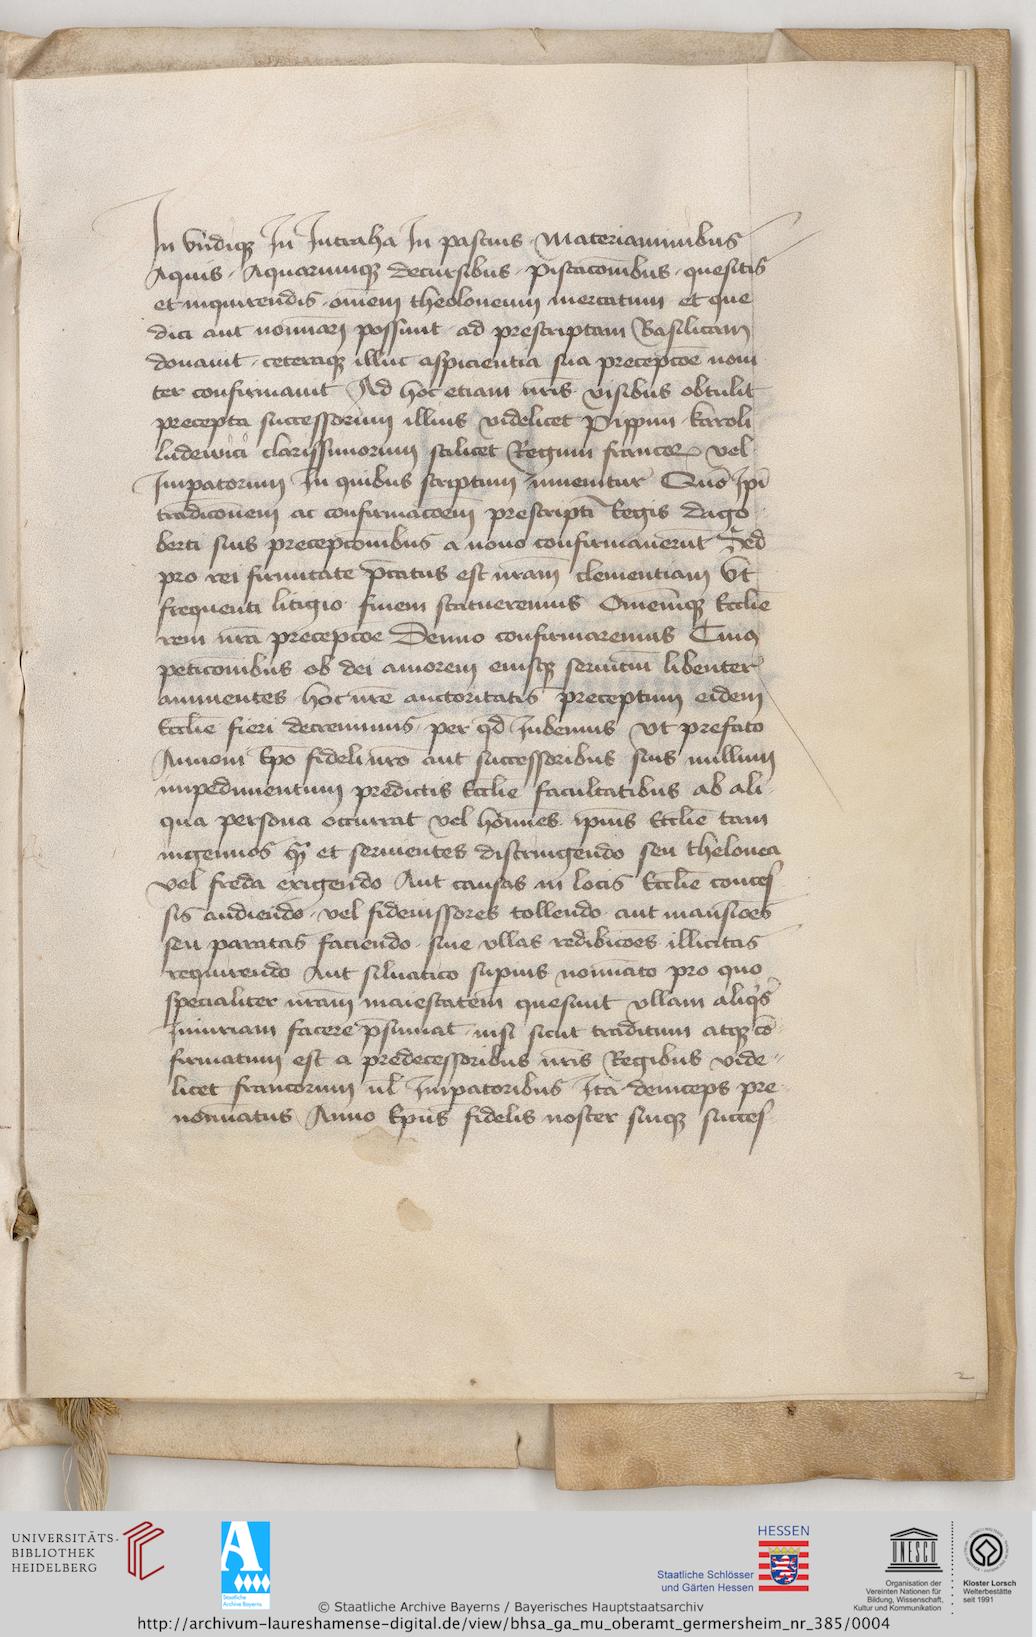 In Vndiqꝫ In Intraha In pascuis Materiaminibus
Aquis Aquarumqꝫ decursibus piscacōnibus quesitis
et inquirendis om̄em theoloneum mercatum et que
dici aut nom̄ari possunt ad prescriptam Basilicam
donauit ceteraqꝫ illuc aspicientia sua precepcōe
ter confirmauit Ad hoc etiam nr̄is visibus obtulit
precepta successorum illius videlicet Pippini karoli
ludewici clarissimorum scilicet Regum francoꝝ vel
Imꝑatorum In quibus scriptum Inuenitur Qm̄ Ip̄i
tradicōnem ac confirmacōem prescripti Regis dago
berti suis precepcōnibus a nouo confirmauerūt Sed
pro rei firmitate p̄catus est nr̄am clementiam Vt
frequenti litigio finem statueremus Om̄emqꝫ Eccl̄ie
rem nr̄a precepcōe Denuo confirmaremus Cuiꝰ
peticōnibus ob dei amorem eiusqꝫ seruitiū libenter
annuentes hoc nr̄e auctoritatis preceptum eidem
Eccl̄ie fieri decreuimus per qd̄ Iubemus Vt prefato
Annoni Ep̄o fideli nr̄o aut successoribus suis nullum
impedimentum predictis Eccl̄ie facultatibus ab ali
qua persona occurrat vel homines ip̄ius Eccl̄ie tam
ingenuos qm̄ et seruientes distringendo seu thelonea
vel freda exigendo Aut causas in locis Eccl̄ie conces
sis audiendo vel fideiussores tollendo aut mansiōes
seu paratas faciendo siue vllas redibicōes illicitas
requirendo Aut siluatico supius nom̄ato pro quo
specialiter nr̄am maiestatem quesiuit vllam aliqͥs
Iniuriam facere p̄sumat nisi sicut traditum atqꝫ cō
firmatum est a predecessoribus nr̄is Regibus vide
licet francorum ul̄ Imꝑatoribus Ita deinceps pre
nom̄atus Anno Ep̄us fidelis noster suiqꝫ succes
2
UNIVERSITÄTS-
BIBLIOTHEK
HEIDELBERG
A
Staatliche
Archive Bayerns
HESSEN
Staatliche Schlösser
und Gärten Hessen
UNESCO
Organisation der
Vereinten Nationen für
Bildung, Wissenschaft,
Kultur und Kommunikation
Kloster Lorsch
Welterbestätte
seit 1991
© Staatliche Archive Bayerns / Bayerisches Hauptstaatsarchiv
http://archivum-laureshamense-digital.de/view/bhsa_ga_mu_oberamt_germersheim_nr_385/0004